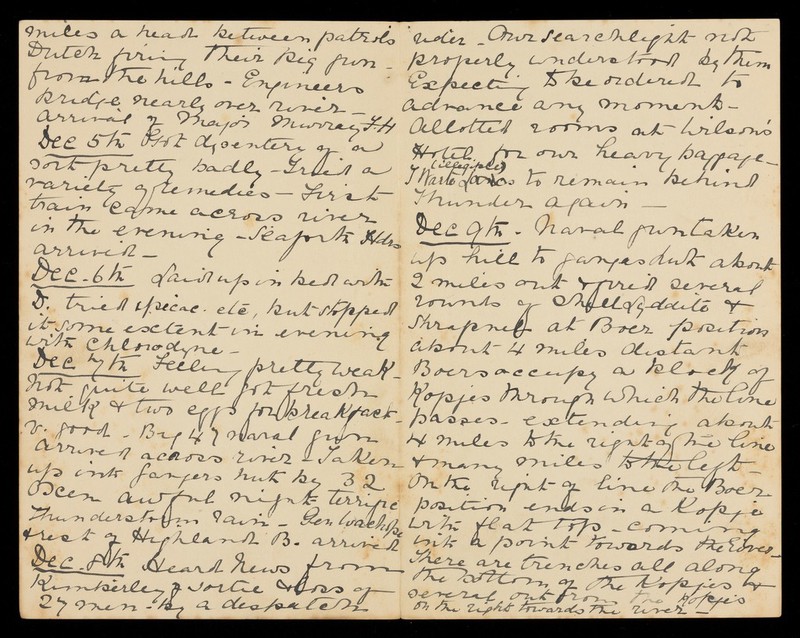 miles a head between patrols
Dutch firing their big gun -
from the hills - Engineers
bridge nearly over river -
arrival of Major Murray
Dec 5th Got dysentery of a
sort pretty badly - Tried a
variety of remedies - First
train came across river
in the evening - Seaforth Hdrs
arrived -
Dec. 6th Laid up in bed with
D. tried ipecac. etc, but stopped
it some extent in evening
with Chlorodyne -
Dec 7th Feeling pretty weak -
Not quite well got fresh
milk & two eggs for breakfast -
v. good - Big 4.7 naval gun
arrived across river - Taken
up into Gangers hut by 32
Oxen awful night terrific
Thunderstorm rain - Gen Wachope
& rest of Highland B. arrived
Dec. 8th Heard News from
Kimberley of sortie & loss of
27 men - by a despatch
rider - Our Searchlight not
properly understood by them
Expecting to be ordered to
advance any moment -
Allotted rooms at Wilson's
Hotel for our heavy baggage -
to remain behind
Thunder again -
Dec 9th - Naval gun taken
up hill to ganges hut about
2 miles out & fired several
rounds of Shell Lyddite &
Shrapnel at Boer position
about 4 miles distant
Boers occupy a block of
Kopjes through which the line
passes - extending about
4 miles to the right of the line
& many miles to the left
On the right of line the Boer
position ends in a Kopje
with flat top - coming
into a point towards the river -
There are trenches all along
the bottom of the Kopjes &
several out from the Kopjes
on the right towards the river -